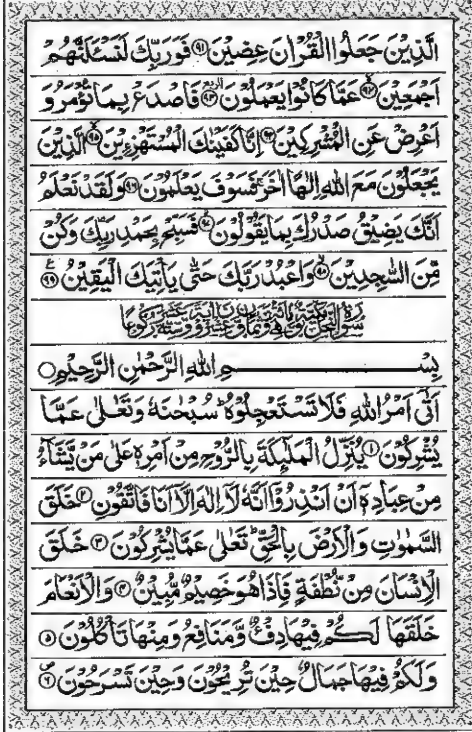 الَّذِيْنَ جَعَلُوا الْقُرْاٰنَ عِضِيْنَ ﴿۹۱﴾ فَوَرَبِّكَ لَنَسْـَٔلَنَّهُمْ
اَجْمَعِيْنَ ﴿۹۲﴾ عَمَّا كَانُوْا يَعْمَلُوْنَ ﴿۹۳﴾ فَاصْدَعْ بِمَا تُؤْمَرُ وَ
اَعْرِضْ عَنِ الْمُشْرِكِيْنَ ﴿۹۴﴾ اِنَّا كَفَيْنٰكَ الْمُسْتَهْزِءِيْنَ ﴿۹۵﴾ الَّذِيْنَ
يَجْعَلُوْنَ مَعَ اللّٰهِ اِلٰهًا اٰخَرَ ۚ فَسَوْفَ يَعْلَمُوْنَ ﴿۹۶﴾ وَلَقَدْ نَعْلَمُ
اَنَّكَ يَضِيْقُ صَدْرُكَ بِمَا يَقُوْلُوْنَ ﴿۹۷﴾ فَسَبِّحْ بِحَمْدِ رَبِّكَ وَكُنْ
مِّنَ السّٰجِدِيْنَ ﴿۹۸﴾ وَاعْبُدْ رَبَّكَ حَتّٰى يَاْتِيَكَ الْيَقِيْنُ ﴿۹۹﴾
بِسْمِ اللّٰهِ الرَّحْمٰنِ الرَّحِيْمِ ○
اَتٰٓى اَمْرُ اللّٰهِ فَلَا تَسْتَعْجِلُوْهُ ؕ سُبْحٰنَهٗ وَتَعٰلٰى عَمَّا
يُشْرِكُوْنَ ﴿۱﴾ يُنَزِّلُ الْمَلٰٓئِكَةَ بِالرُّوْحِ مِنْ اَمْرِهٖ عَلٰى مَنْ يَّشَآءُ
مِنْ عِبَادِهٖٓ اَنْ اَنْذِرُوْٓا اَنَّهٗ لَاۤ اِلٰهَ اِلَّاۤ اَنَا فَاتَّقُوْنِ ﴿۲﴾ خَلَقَ
السَّمٰوٰتِ وَالْاَرْضَ بِالْحَقِّ ؕ تَعٰلٰى عَمَّا يُشْرِكُوْنَ ﴿۳﴾ خَلَقَ
الْاِنْسَانَ مِنْ نُّطْفَةٍ فَاِذَا هُوَ خَصِيْمٌ مُّبِيْنٌ ﴿۴﴾ وَالْاَنْعَامَ
خَلَقَهَا ۚ لَكُمْ فِيْهَا دِفْءٌ وَّمَنَافِعُ وَمِنْهَا تَاْكُلُوْنَ ﴿۵﴾
وَلَكُمْ فِيْهَا جَمَالٌ حِيْنَ تُرِيْحُوْنَ وَحِيْنَ تَسْرَحُوْنَ ﴿۶﴾